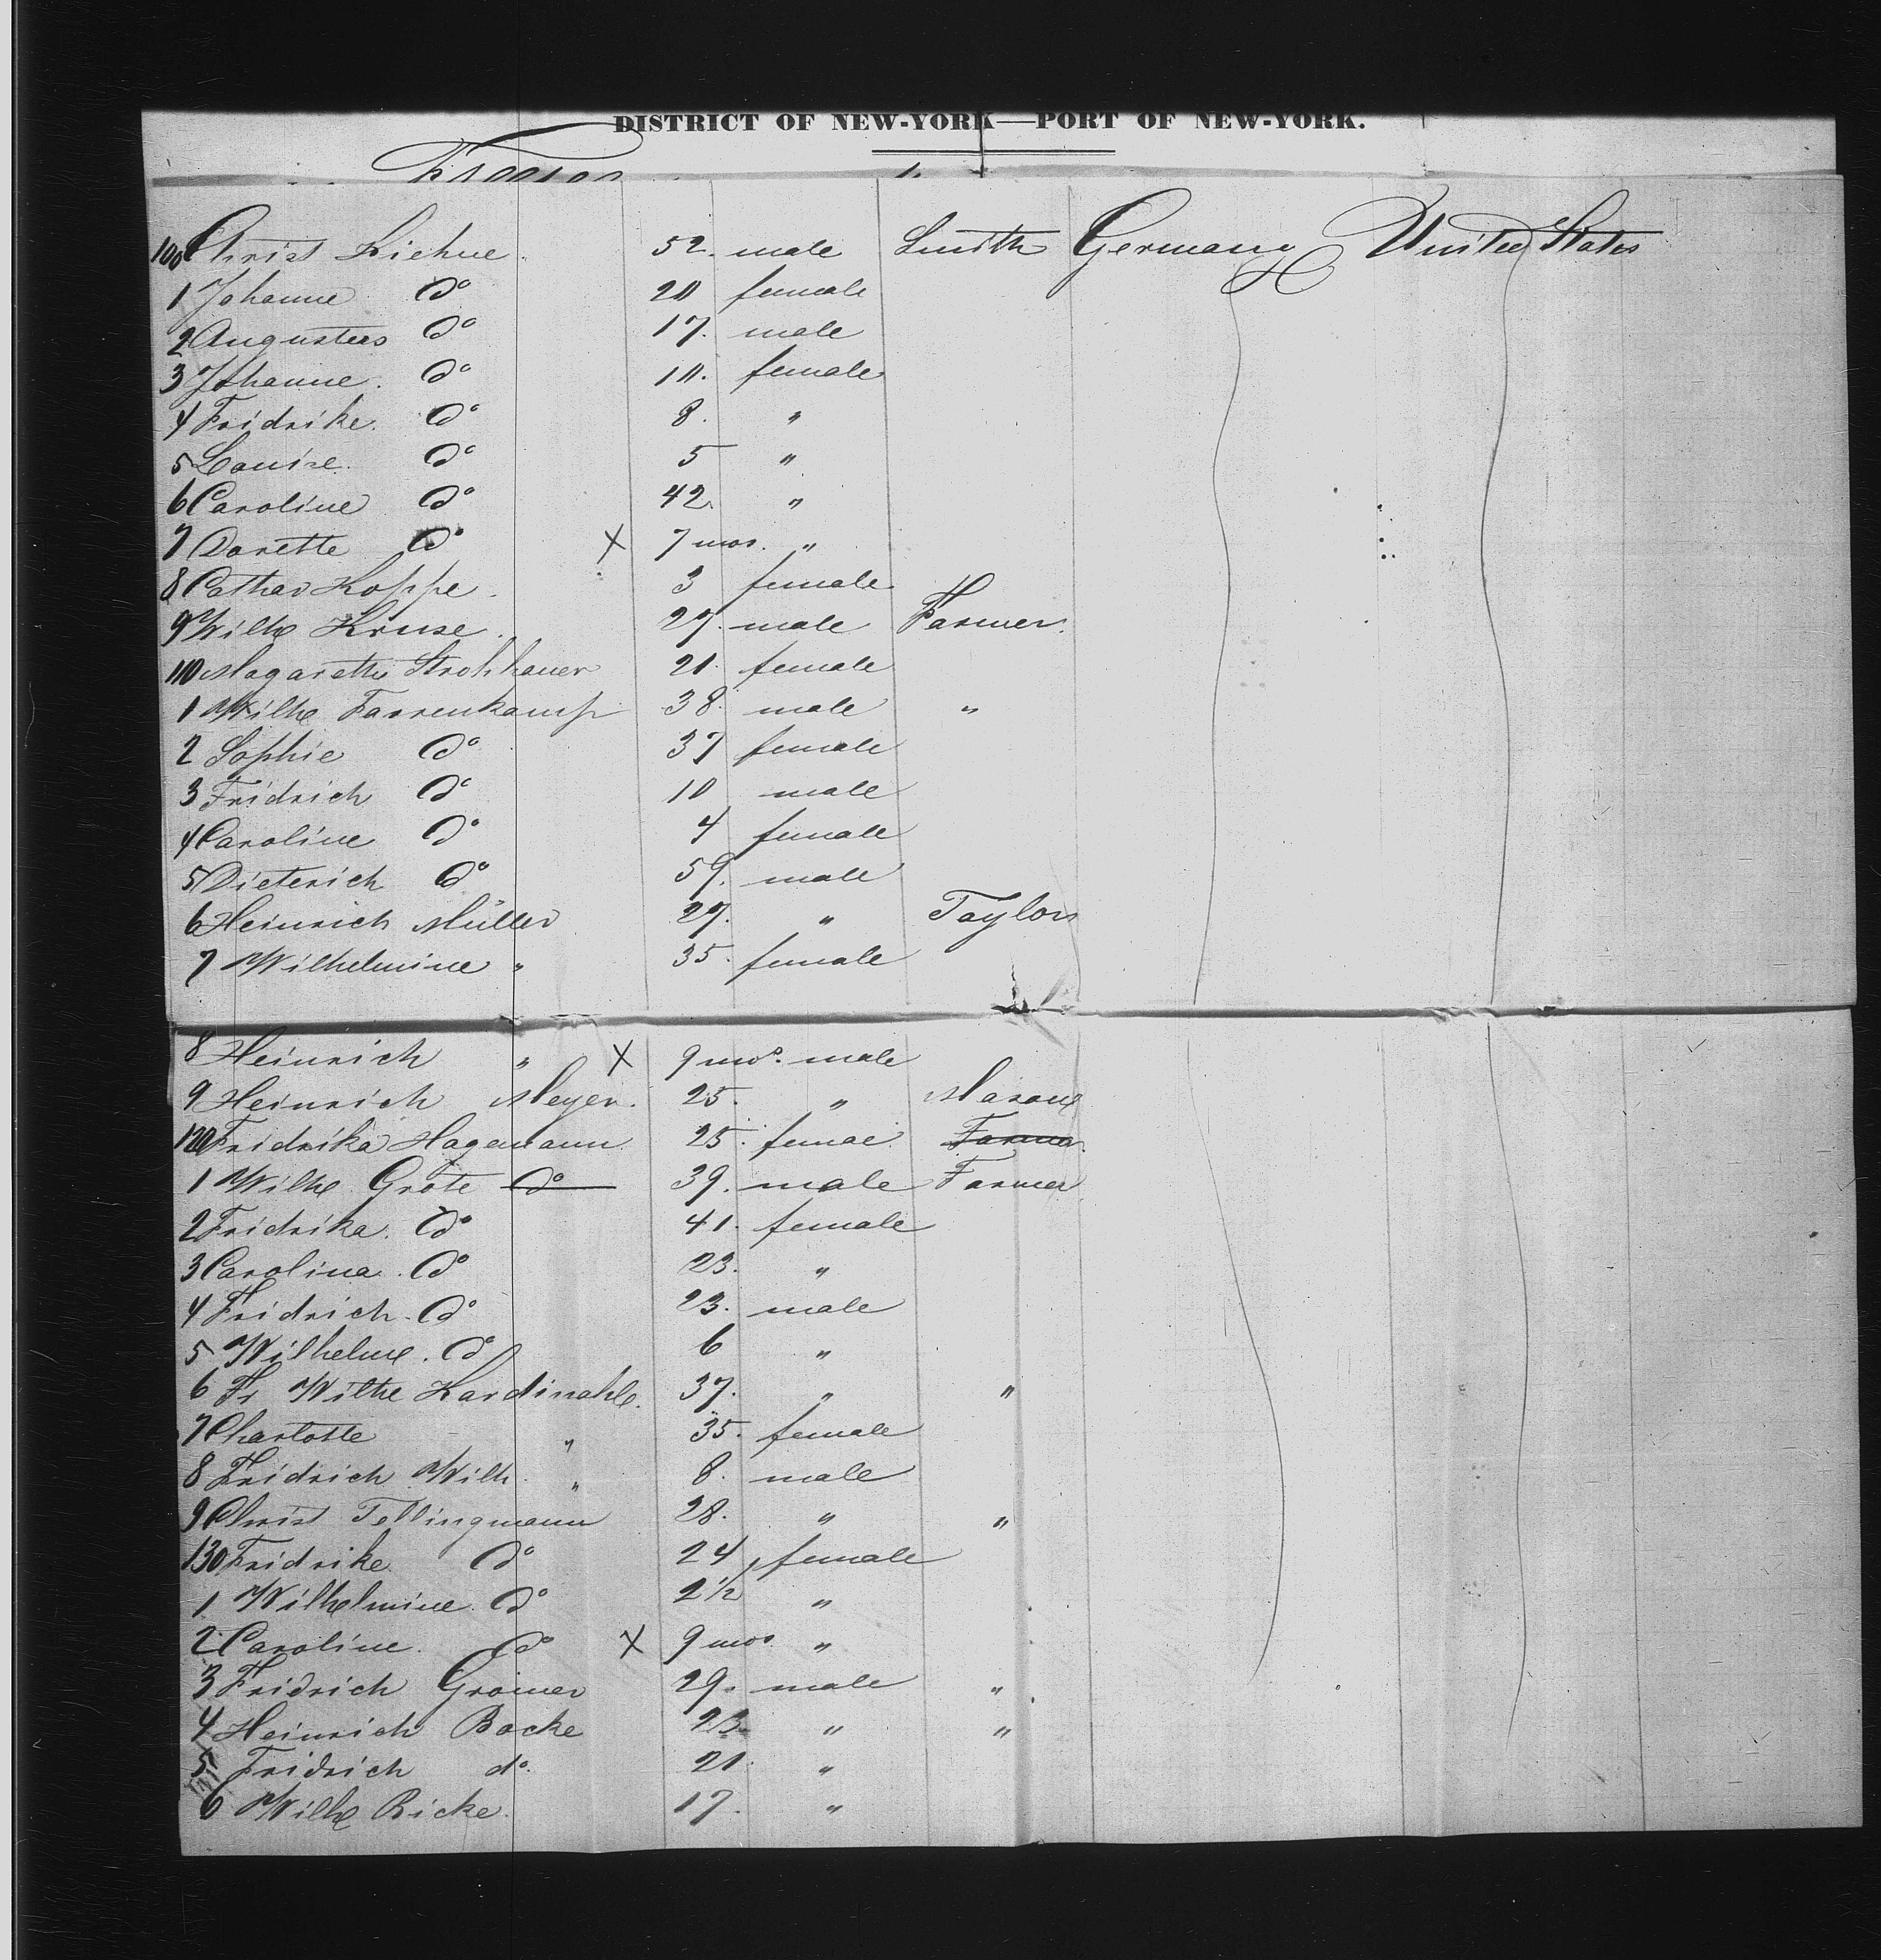 DISTRICT OF NEW-YORK—PORT OF NEW-YORK.
100 Christ Kiehne 52. male Smith Germany United States
1 Johanne do 20 female
2 Augusteus do 17. male
3 Johanne do 10. female
4 Fridrike do 8. "
5 Louise do 5 "
6 Caroline do 42. "
7 Dorette do X 7 mos. "
8 Cathar Koppe 3 female
9 Wilhe Kruse 27. male Farmer
110 Magarethe Strohhauer 21. female
1 Wilhe Farrenkamp 38. male "
2 Sophie do 37 female
3 Fridrich do 10 male
4 Caroline do 4 female
5 Dieterich do 59. male
6 Heinrich Müller 27. " Taylor
7 Wilhelmine " 35. female
8 Heinrich " X 9 mos. male
9 Heinrich Meyer. 25. " Mason
120 Fridrika Hagemann 25. femae Farmer
1 Wilhe Grote do 39. male Farmer
2 Fridrika. do 41. female
3 Carolina. do 23. "
4 Fridrich. do 23. male
5 Wilhelm. do 6 "
6 Fr Wilhe Kardinahle. 37. " "
7 Charlotte " 35. female
8 Fridrich Wilh. " 8. male
9 Christ Tellingmann 28. " "
130 Fridrike do 24 female
1 Wilhelmine. do 2 1/2 "
2 Caroline. do X 9 mos. "
3 Fridrich Groiner 29. male "
4 Heinrich Backe 23. " "
5 Fridrich do. 21. "
6 Wilhe Ricke. 17. "